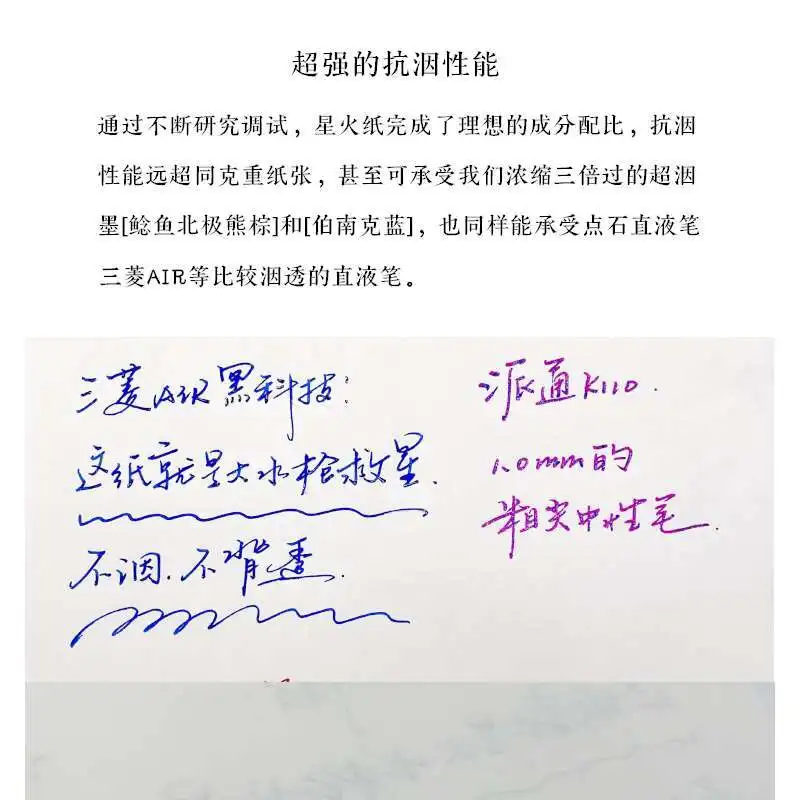 超强的抗洇性能
通过不断研究调试，星火纸完成了理想的成分配比，抗洇
性能远超同克重纸张，甚至可承受我们浓缩三倍过的超洇
墨[鲶鱼北极熊棕]和[伯南克蓝]，也同样能承受点石直液笔
三菱AIR等比较洇透的直液笔。
三菱AIR黑科技：
这纸就是大水枪救星.
不洇.不背透.
派通K110.
1.0mm的
粗尖中性笔.